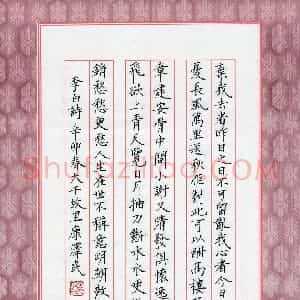 棄我去者昨日之日不可留亂我心者今日
憂長風萬里送秋雁對此可以酣高樓
章建安骨中間小謝又清發俱懷逸
飛欲上青天覽明月抽刀斷水水更
銷愁愁更愁人生在世不稱意明朝散
李白詩 辛卯春大千故里康澤民